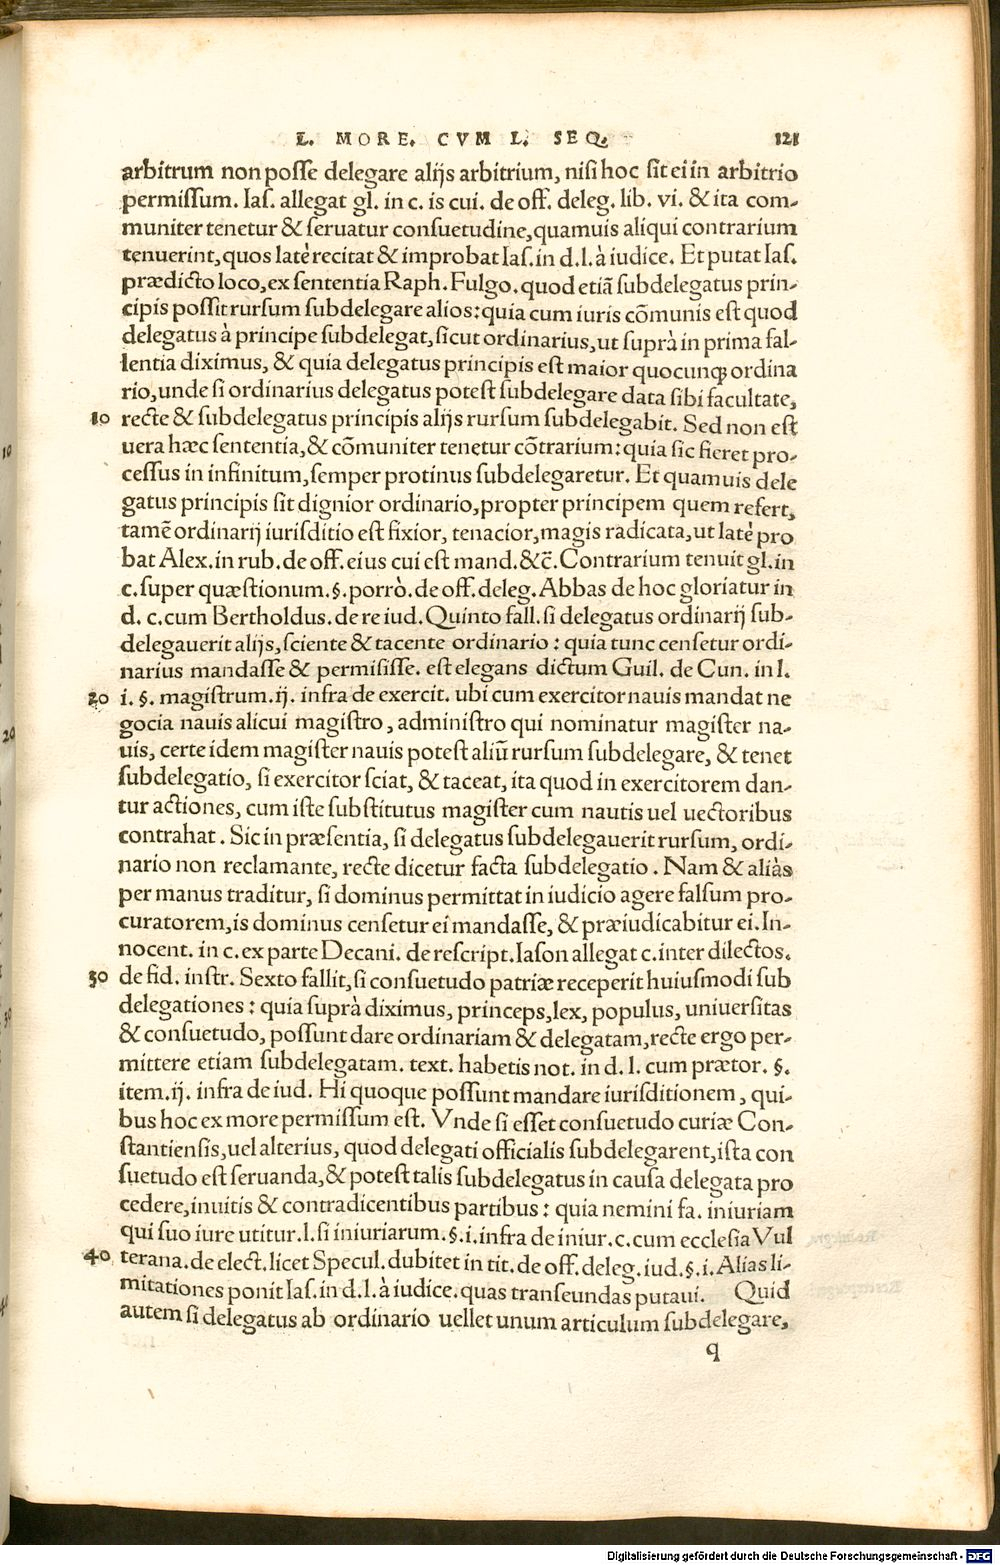 L. MORE. CVM L. SEQ. 121
arbitrum non posse delegare alijs arbitrium, nisi hoc sit ei in arbitrio
permissum. Ias. allegat gl. in c. is cui. de off. deleg. lib. vi. & ita com-
muniter tenetur & seruatur consuetudine, quamuis aliqui contrarium
tenuerint, quos latè recitat & improbat Ias. in d. l. à iudice. Et putat Ias.
prædicto loco, ex sententia Raph. Fulgo. quod etiã subdelegatus prin-
cipis possit rursum subdelegare alios: quia cum iuris cõmunis est quod
delegatus à principe subdelegat, sicut ordinarius, ut suprà in prima fal-
lentia diximus, & quia delegatus principis est maior quocunq; ordina
rio, unde si ordinarius delegatus potest subdelegare data sibi facultate,
10 recte & subdelegatus principis alijs rursum subdelegabit. Sed non est
uera hæc sententia, & cõmuniter tenetur cõtrarium: quia sic fieret pro-
cessus in infinitum, semper protinus subdelegaretur. Et quamuis dele
gatus principis sit dignior ordinario, propter principem quem refert,
tamẽ ordinarij iurisditio est fixior, tenacior, magis radicata, ut latè pro
bat Alex. in rub. de off. eius cui est mand. &c̃. Contrarium tenuit gl. in
c. super quæstionum. §. porrò. de off. deleg. Abbas de hoc gloriatur in
d. c. cum Bertholdus. de re iud. Quinto fall. si delegatus ordinarij sub-
delegauerit alijs, sciente & tacente ordinario: quia tunc censetur ordi-
narius mandasse & permisisse. est elegans dictum Guil. de Cun. in l.
20 i. §. magistrum. ij. infra de exercit. ubi cum exercitor nauis mandat ne
gocia nauis alicui magistro, administro qui nominatur magister na-
uis, certe idem magister nauis potest aliũ rursum subdelegare, & tenet
subdelegatio, si exercitor sciat, & taceat, ita quod in exercitorem dan-
tur actiones, cum iste substitutus magister cum nautis uel uectoribus
contrahat. Sic in præsentia, si delegatus subdelegauerit rursum, ordi-
nario non reclamante, recte dicetur facta subdelegatio. Nam & aliàs
per manus traditur, si dominus permittat in iudicio agere falsum pro-
curatorem, is dominus censetur ei mandasse, & præiudicabitur ei. In-
nocent. in c. ex parte Decani. de rescript. Iason allegat c. inter dilectos.
30 de fid. instr. Sexto fallit, si consuetudo patriæ receperit huiusmodi sub
delegationes: quia suprà diximus, princeps, lex, populus, uniuersitas
& consuetudo, possunt dare ordinariam & delegatam, recte ergo per-
mittere etiam subdelegatam. text. habetis not. in d. l. cum prætor. §.
item. ij. infra de iud. Hi quoque possunt mandare iurisditionem, qui-
bus hoc ex more permissum est. Vnde si esset consuetudo curiæ Con-
stantiensis, uel alterius, quod delegati officialis subdelegarent, ista con
suetudo est seruanda, & potest talis subdelegatus in causa delegata pro
cedere, inuitis & contradicentibus partibus: quia nemini fa. iniuriam
qui suo iure utitur. l. si iniuriarum. §. i. infra de iniur. c. cum ecclesia Vul
40 terana. de elect. licet Specul. dubitet in tit. de off. deleg. iud. §. i. Alias li-
mitationes ponit Ias. in d. l. à iudice. quas transeundas putaui. Quid
autem si delegatus ab ordinario uellet unum articulum subdelegare,
q
10
20
30
40
Digitalisierung gefördert durch die Deutsche Forschungsgemeinschaft - DFG